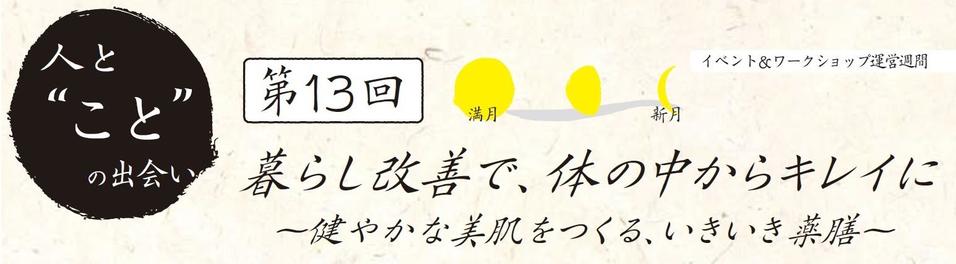 人と
“こと”
の出会い
第13回
満月
新月
イベント&ワークショップ運営週間
暮らし改善で、体の中からキレイに
～健やかな美肌をつくる、いきいき薬膳～